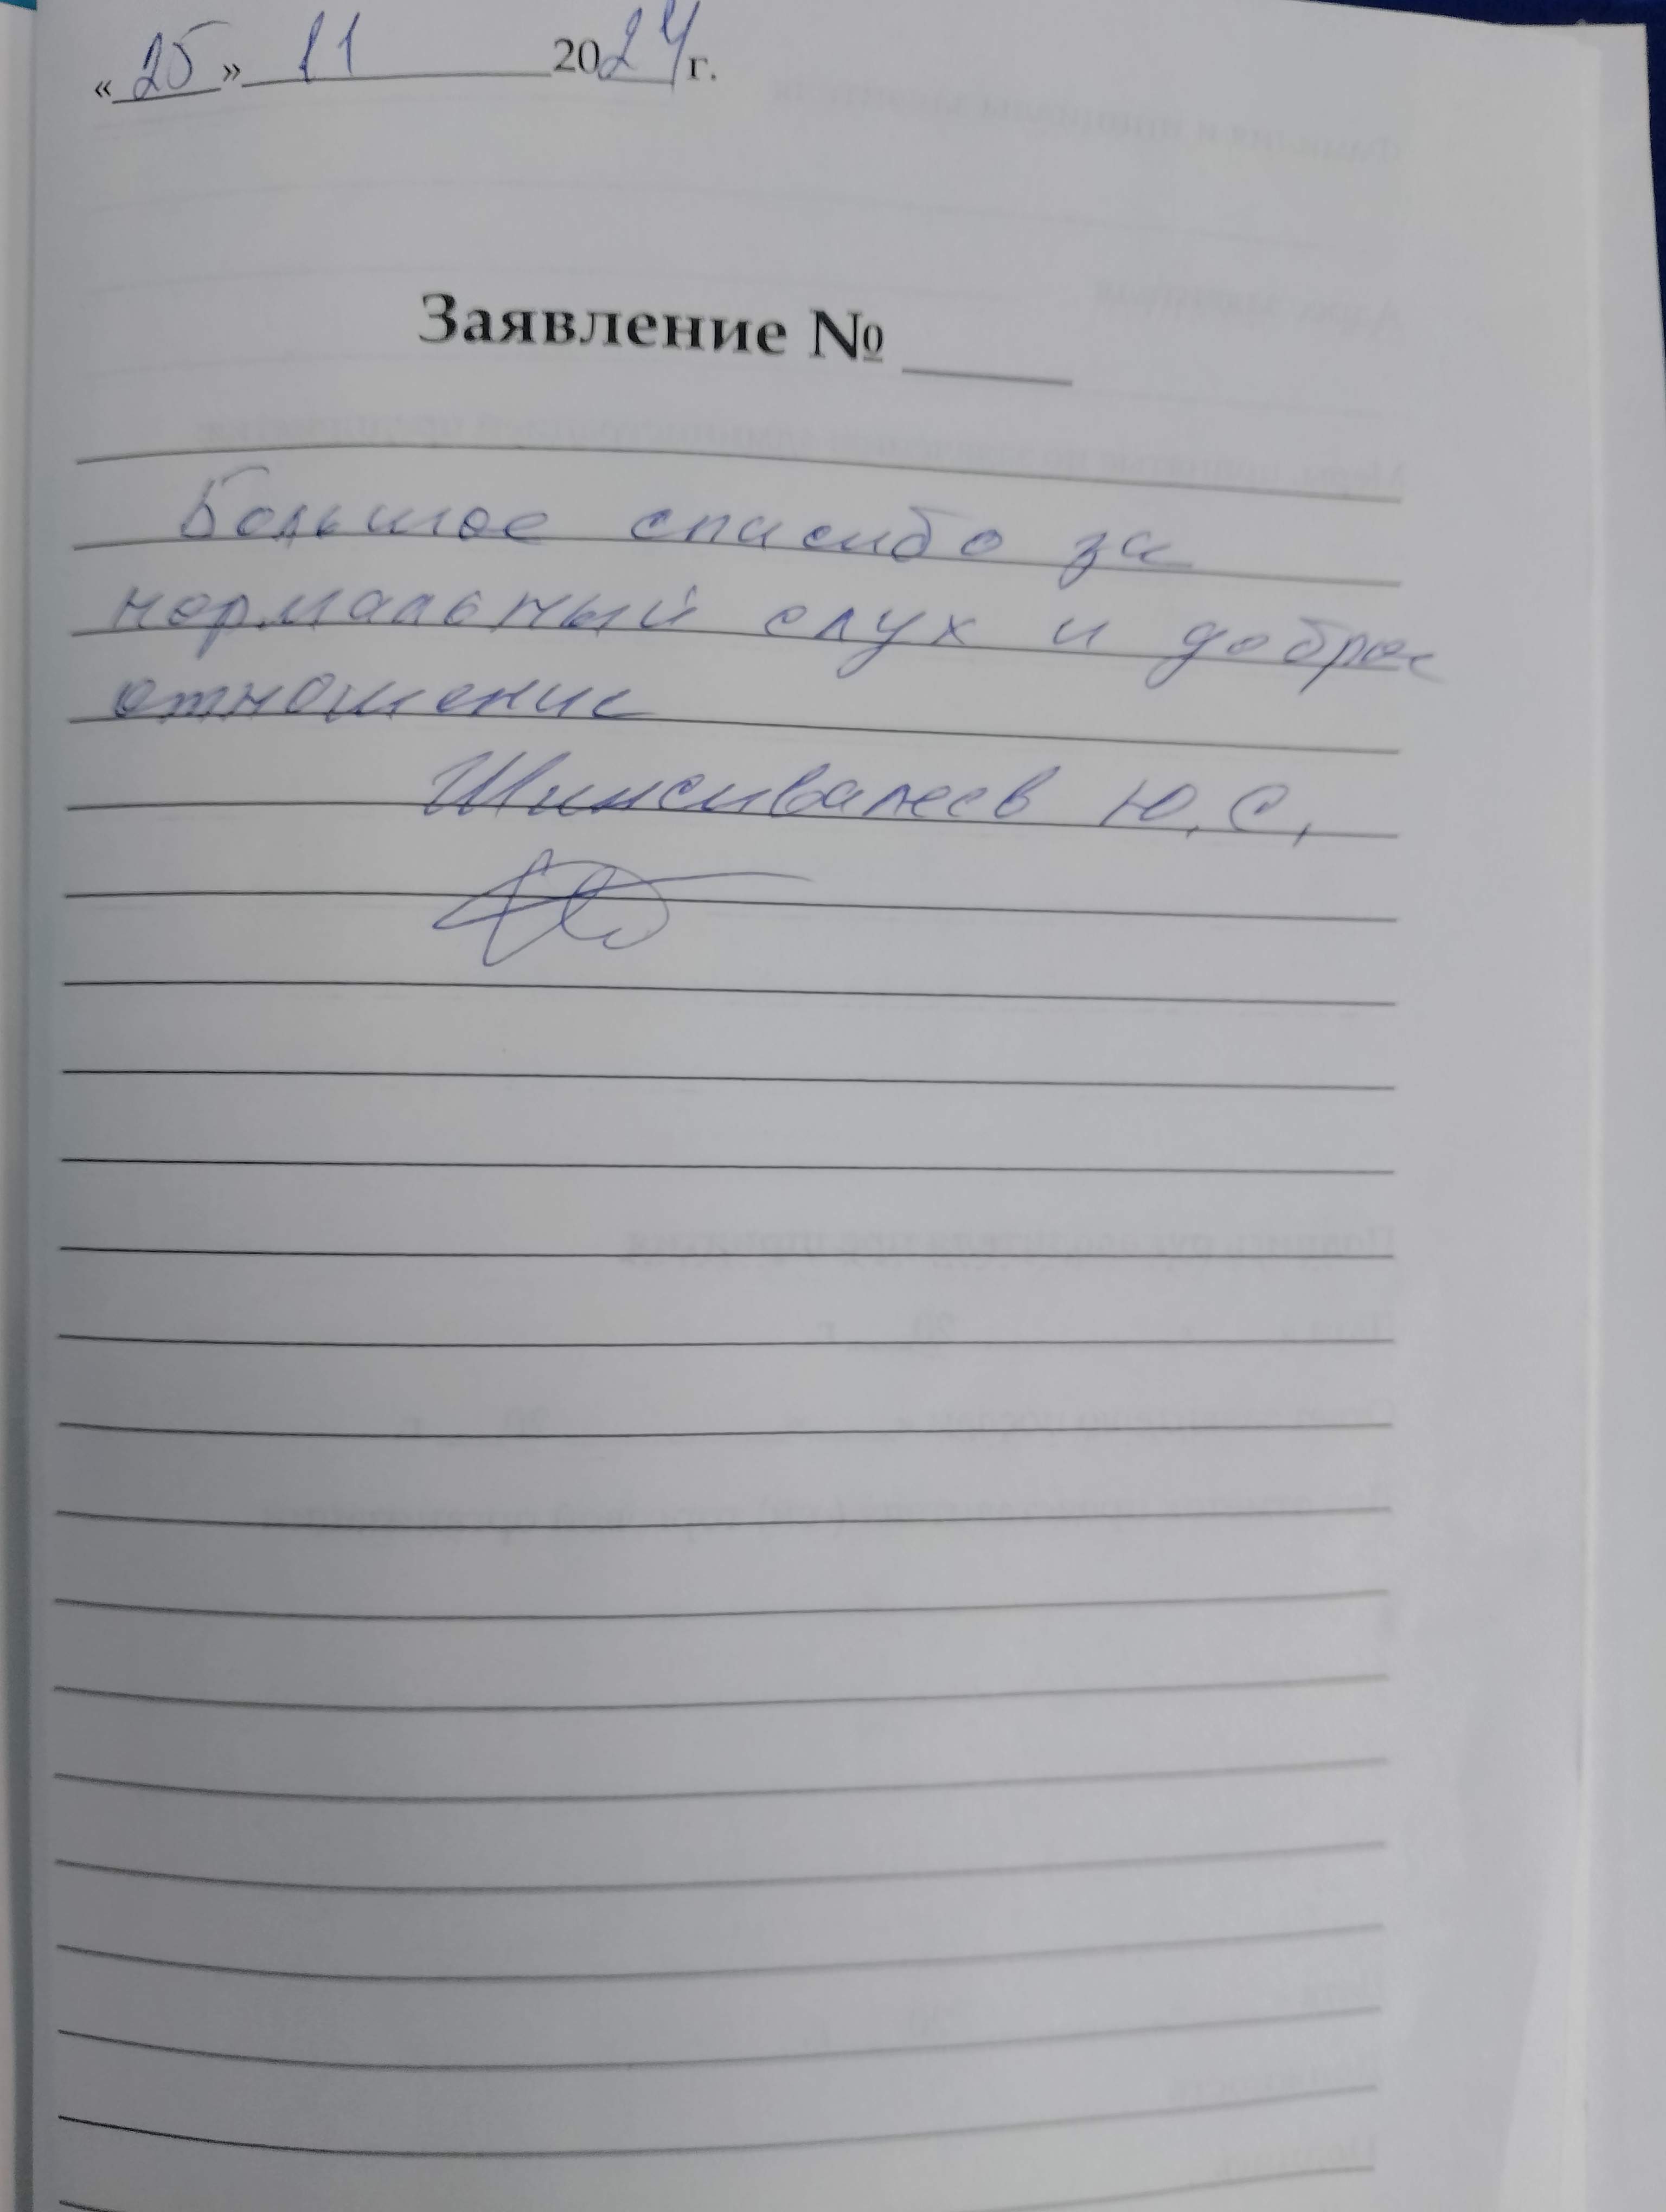 «25» 11 2024 г.
Заявление №
Большое спасибо за
нормальный слух и доброе
отношение
Ю. С.